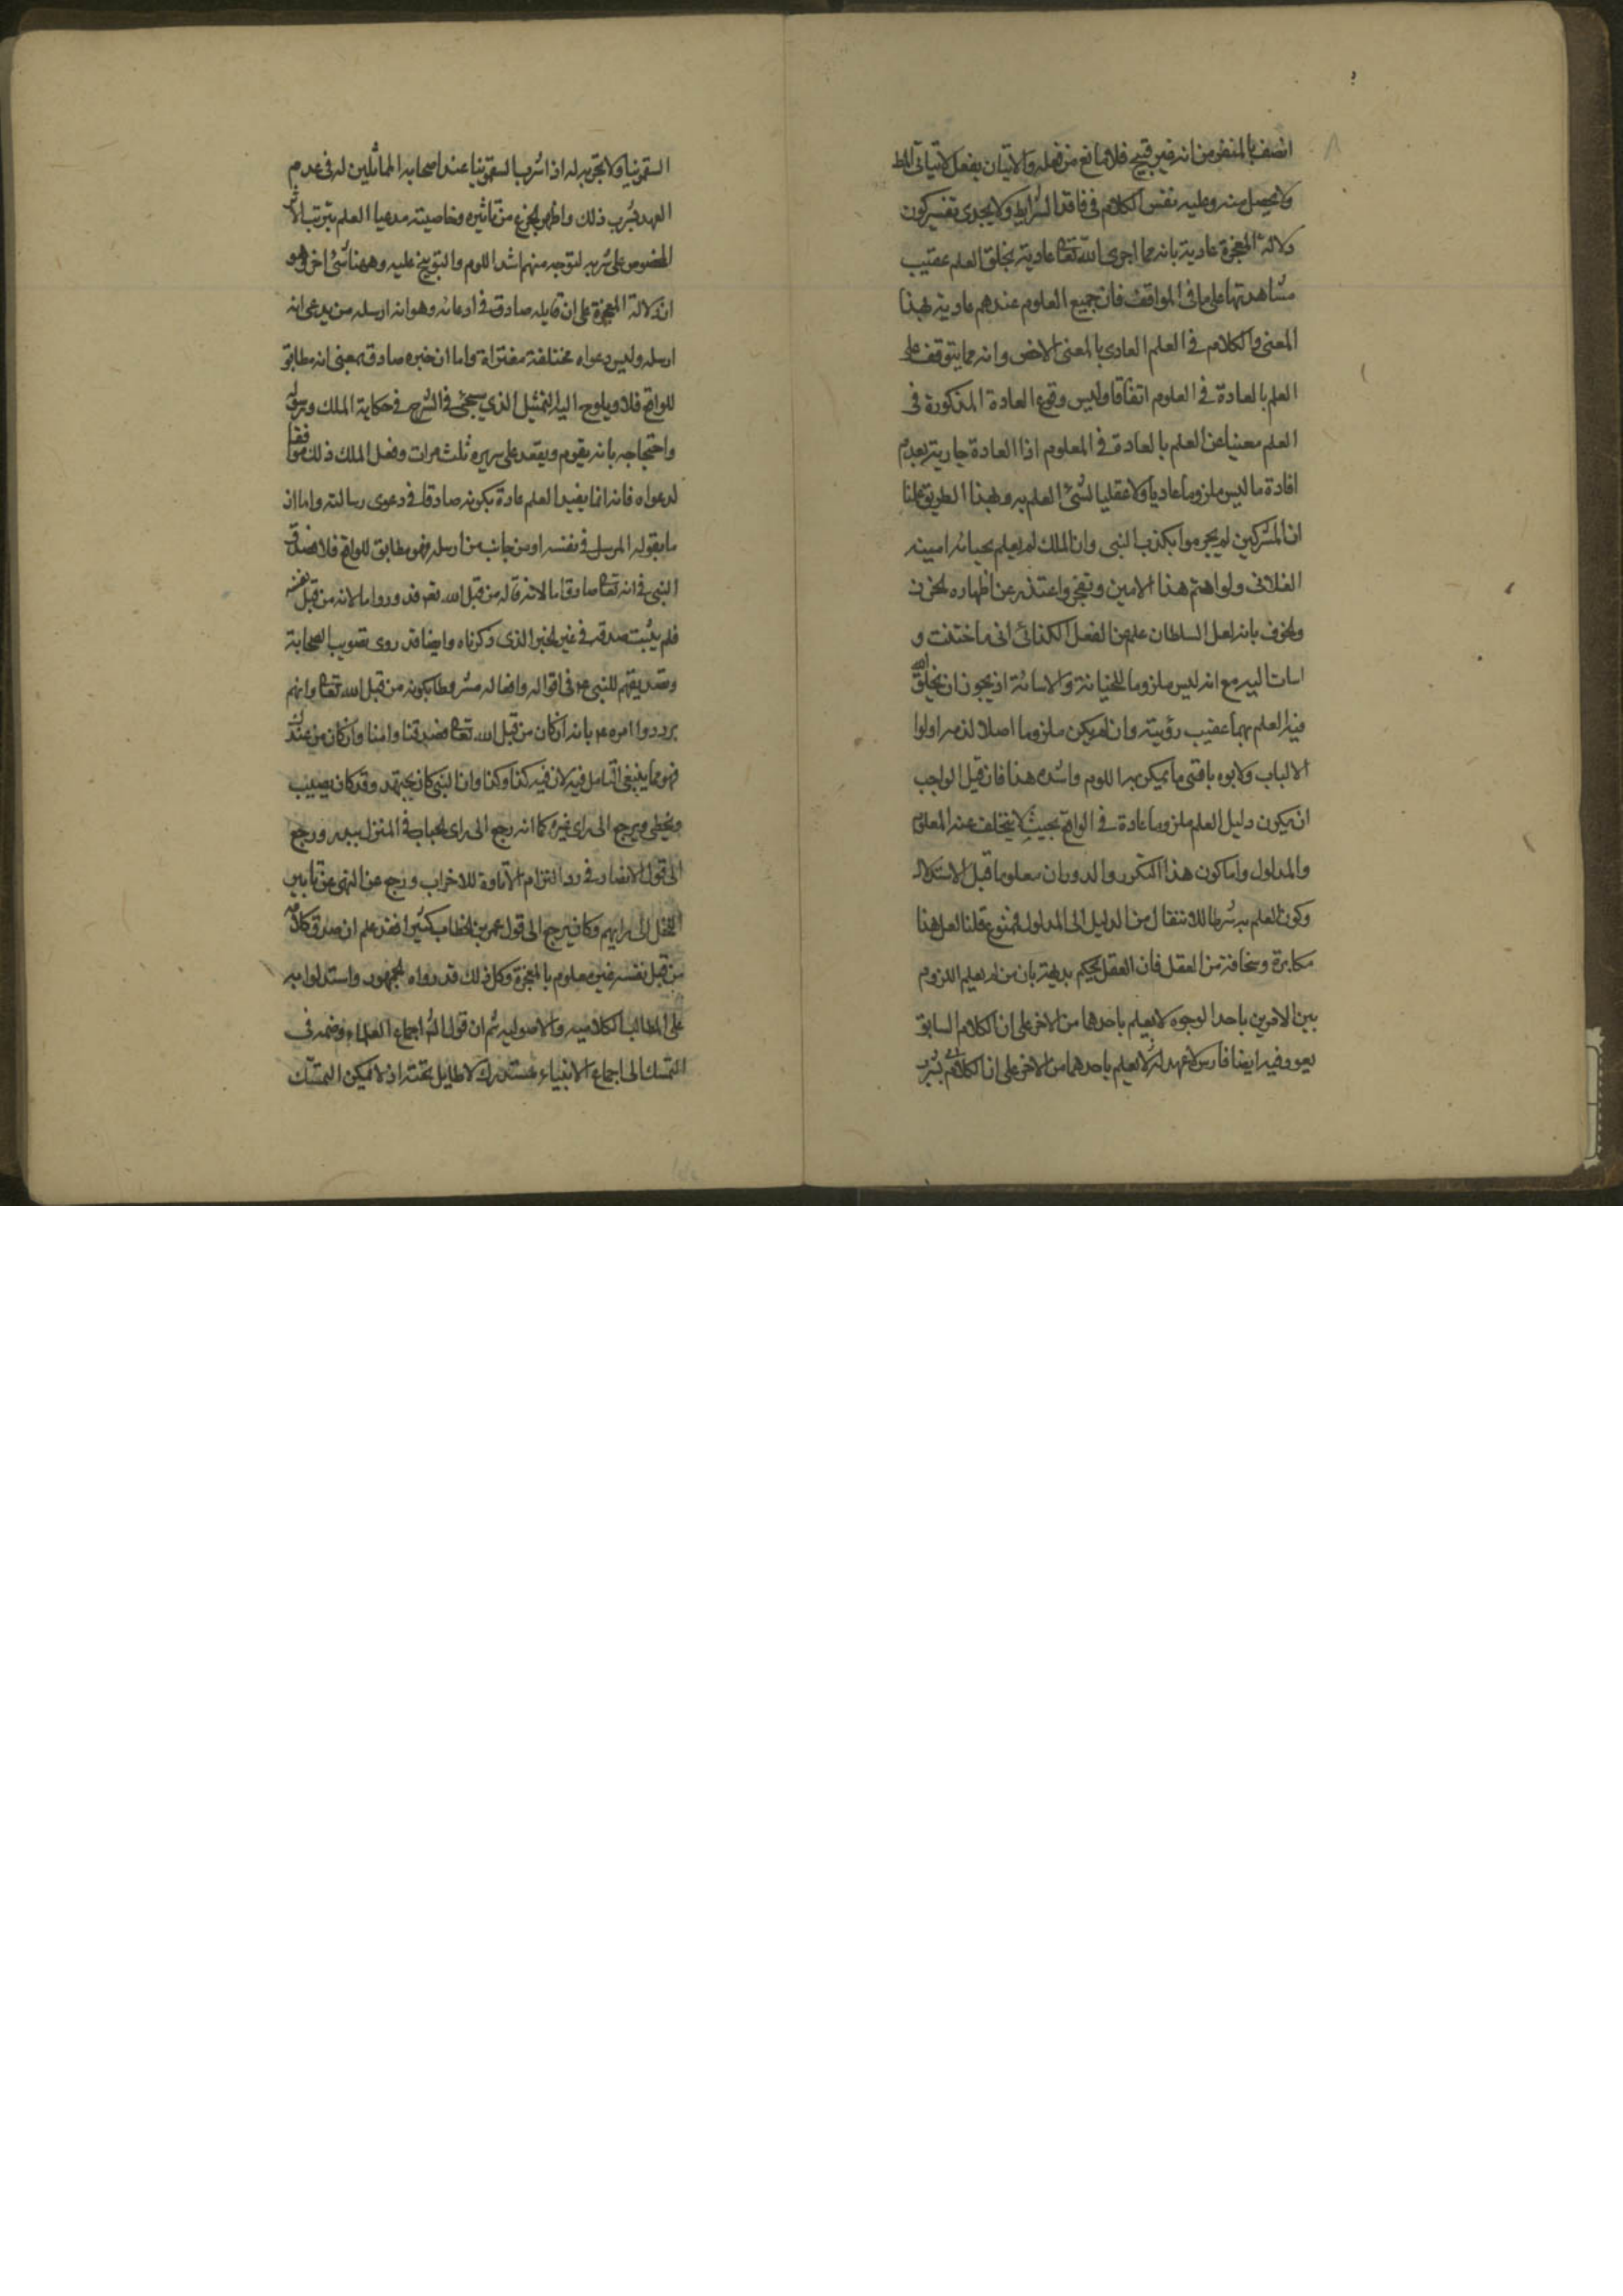 اتصف بالمنفر من انه غير قبيح فلا مانع من فعله والاتيان بفعل لا تيأتى
ولا يحصل منه وعليه نفس الكلام في فاقد الشرايط ولا يجدى تفسير كون
دلالة المعجزة عادية بانه مما اجرى الله تعا عادية بخلق العلم عقيب
مشاهدتها على ما في المواقف فان جميع العلوم عندهم عادية بهذا
المعنى والكلام في العلم العادى بالمعنى الاخص وانه مما يتوقف على
العلم بالعادة في العلوم اتفاقا وليس وقوع العادة المذكورة في
العلم مغنيا عن العلم بالعادة في المعلوم اذا العادة جارية بعدم
افادة ما ليس ملزوما عاديا ولا عقليا لشئ العلم به وبهذا الطريق علمنا
ان المشركين لم يجزموا بكذب النبى وان الملك لم يعلم بخيانة امينه
الفلانى ولو اهتم هذا الامين وتفجر واعتذر عن اظهاره الحزن
والخوف بانه لعل السلطان علم من الفعل الكذائى انى ما ختنت و
اسات اليه مع انه ليس ملزوما للخيانة والاسائة اذ يجوز ان يخلق الله
فيه العلم بهما عقيب رؤيته وان لم يكن ملزوما اصلا لذمه اولوا
الالباب ولاموه باقتى ما يمكن به اللوم واشده هذا فان قيل الواجب
ان يكون دليل العلم ملزوما عادة في الواقع بحيث لا يتخلف عنه المعلوم
والمدلول واما كون هذا التكرر والدوران معلوما قبل الاستدلال
وكون العلم به شرطا للانتقال من الدليل الى المدلول فممنوع قلنا لعل هذا
مكابرة وسخافة من العقل فان العقل يحكم بديهة بان من لم يعلم اللزوم
بين الامرين باحد الوجوه لا يعلم باحدهما من الاخر على ان الكلام السابق
يعود فيه ايضا لا يعلم باحدهما من الاخر على ان الكلام
السقمونيا ولا تجربه له اذا شرب السقمونيا عند اصحابه المماثلين له في عدم
العهد بشرب ذلك واظهر الجزع من تاثيره وخاصيته مدعيا العلم بترتب الاثر
المخصوص على شربه لتوجه منهم اشد اللوم والتوبيخ عليه وههنا شئ اخر وهو
ان دلالة المعجزة على ان قايله صادق في ادعائه وهو انه ارسله من يدعى انه
ارسله وليس دعواه مختلقة مفتراة واما ان خبره صادق بمعنى انه مطابق
للواقع فلا ويلوح اليه التمثيل الذي سيجئ في الشرح في حكاية الملك ورسوله
واحتجاجه بانه يقوم ويقعد على سريره ثلث مرات وفعل الملك ذلك موافقا
لدعواه فانه انما يفيد العلم عادة بكونه صادقا في دعوى رسالته واما ان
ما يقوله المرسل في نفسه او من جانب من ارسله فهو مطابق للواقع فلا فصدق
النبى في انه تعا صادقا ما لانه قاله من قبل الله نعم قد وروا ما لانه من قبل نفسه
فلم يثبت صدقه في غير الخبر الذى ذكرناه وايضا قد روى تصويب الصحابة
وتصديقهم للنبى ع في اقواله وافعاله مشروطا بكونه من قبل الله تعا وانهم
يرددوا امره ع بانه ان كان من قبل الله تعا فصدقنا وامنا وان كان من عندك
فهو مما ينبغى التامل فيه لان فيه كذا وكذا وان النبى كان يجتهد وقد كان يصيب
ويخطى ويرجع الى راى غيره كما انه رجع الى راى الحباب في المنزل ببدر ورجع
الى قول الانصار في رد التزام الاتاوة للاحزاب ورجع عن النهى عن تابير
النخل الى رايهم وكان يرجع الى قول عمر بن الخطاب كثيرا فقد علم ان صدق كلامه
من قبل نفسه غير معلوم بالمعجزة وكل ذلك قد رواه الجمهور واستدلوا به
على المطالب الكلاميه والاصوليه ثم ان قوله اجماع العلماء وضمه في
التمسك الى اجماع الانبياء مستدرك لا طايل تحته اذ لا يمكن التمسك